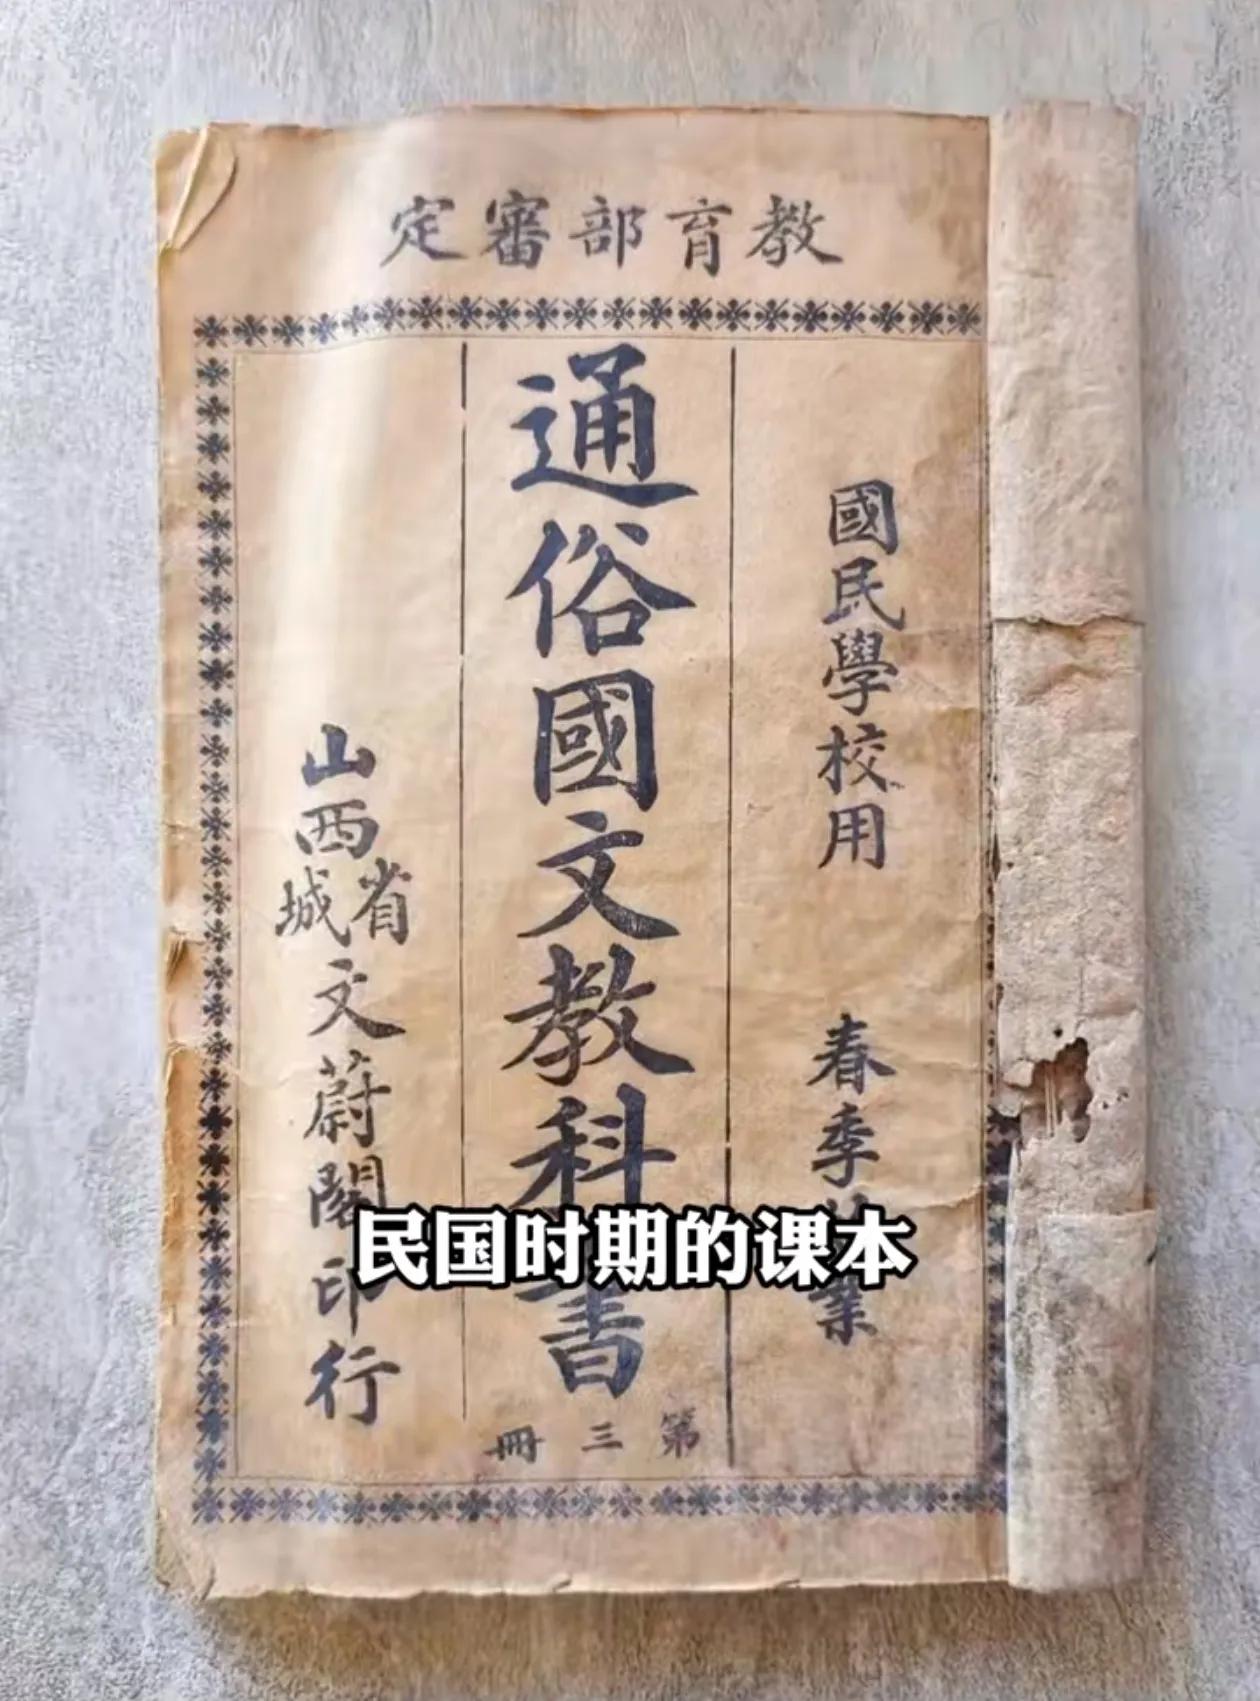 教育部審定
國民學校用
春季
業
通俗國文教科書
第三冊
山西省城文蔚閣印行
民国时期的课本